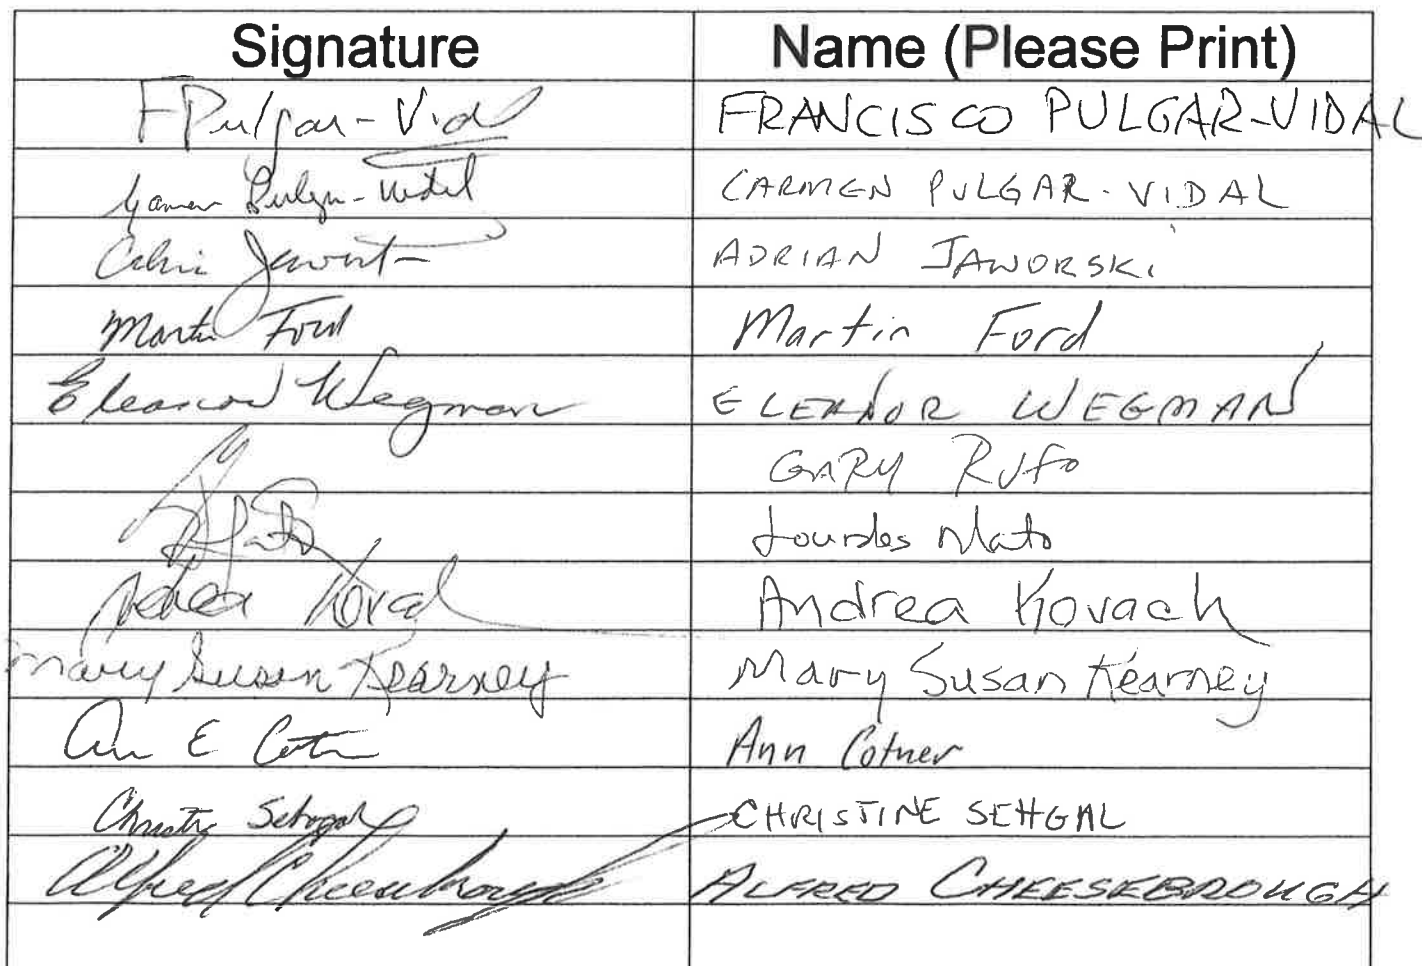 Signature Name (Please Print)
FPulgar-Vidal FRANCISCO PULGAR-VIDAL
Pulgar-Vidal CARMEN PULGAR-VIDAL
ADRIAN JAWORSKI
Martin Ford Martin Ford
Eleanor Wegman ELEANOR WEGMAN
GARY RUFO
Lourdes Mato
Andrea Kovach Andrea Kovach
Mary Susan Kearney Mary Susan Kearney
Ann E Cotner Ann Cotner
Christine Sehgal CHRISTINE SEHGAL
Alfred Cheesebrough ALFRED CHEESEBROUGH